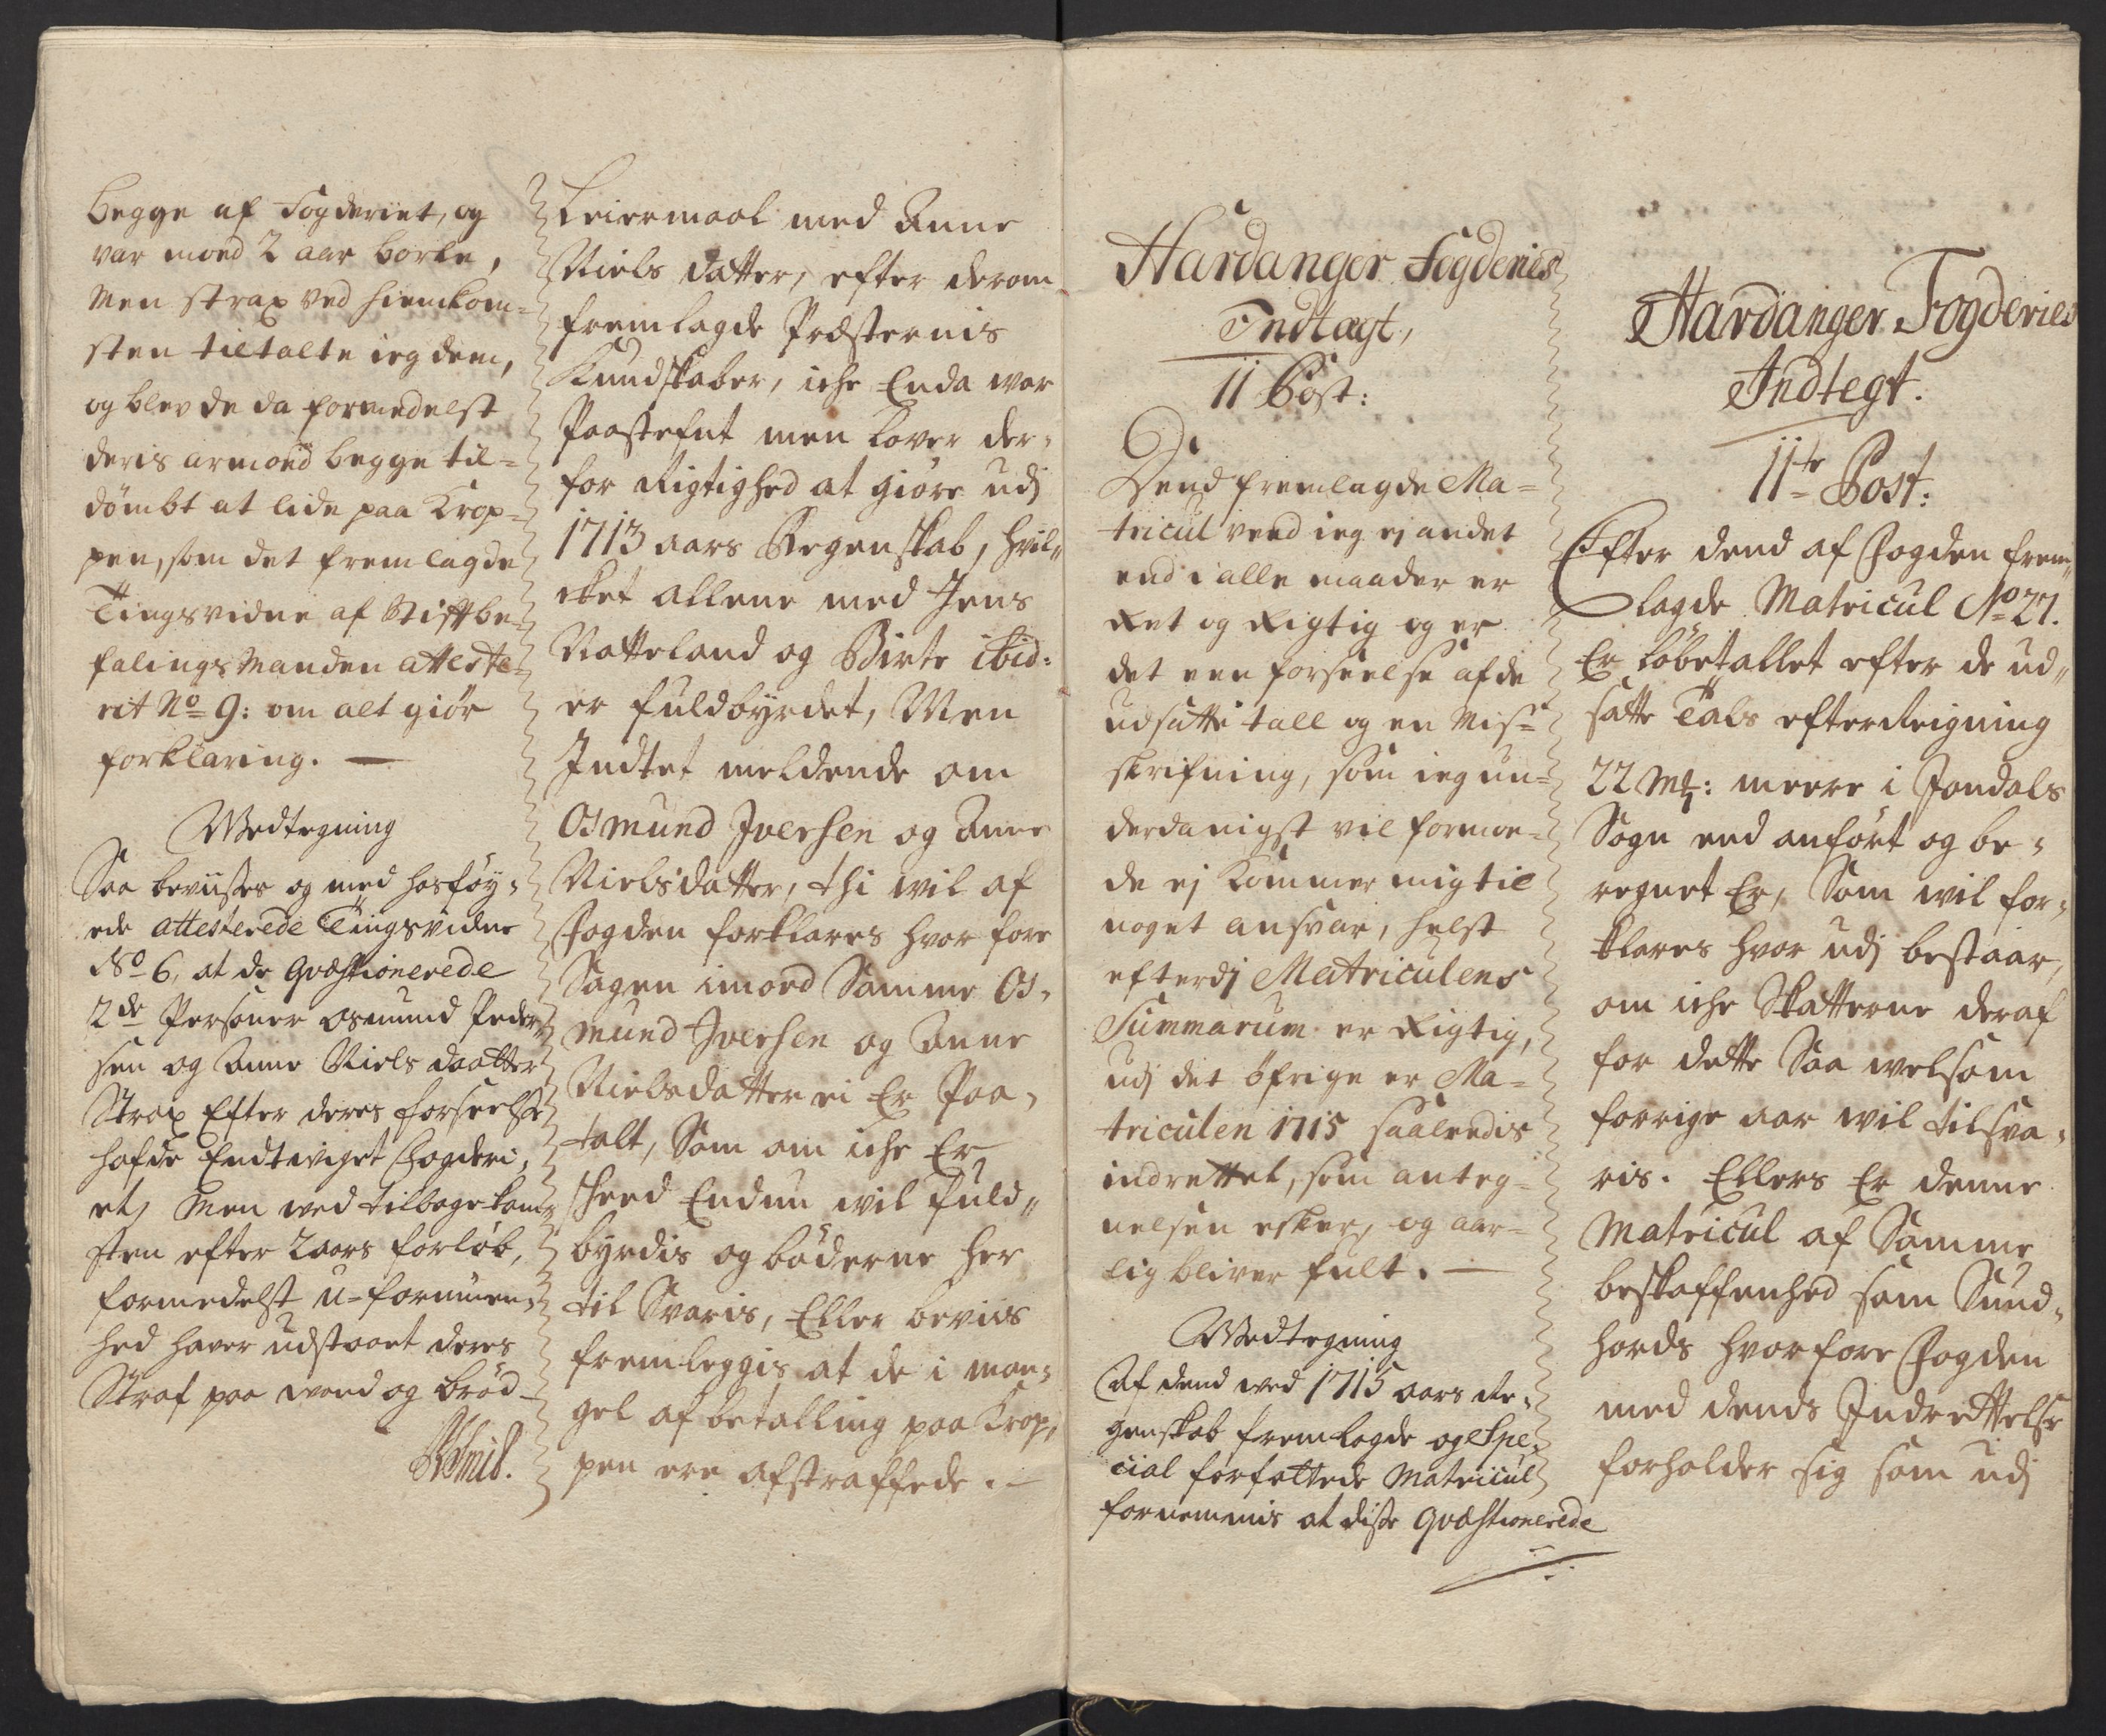 begge af Fogderiet, og
var moed 2 aar borte,
Men strax ved hiemkom-
sten tiltalte ieg dem,
og blev de da formedelst
deris armoed begge til-
dömbt at lide paa Krop-
pen, som det fremlagde
Tingsvidne af Stiftbe-
falingsManden atteste-
rit No 9: om alt giör
forklaring. —
Vedtegning
Saa beviises og med hosföy-
ede attesterede Tingsvidne
No 6, at de Qvæstionerede
2de Personer Osmund Peder-
sen og Anne Niels daatter
Strax Efter deres forseelse
hafde Endtwiget Fogderi-
et, Men ved tilbagekom-
sten efter 2 aars forlöb,
formedelst u-formuen-
hed haver udstaaet deres
Straf paa vand og bröd —
Leiermaal med Anne
Niels datter, efter derom
fremlagde Præsternis
Kundskaber, iche Enda war
Paastefnt men lover der-
for Rigtighed at giöre udj
1713 aars Regenskab, hvil-
cket allene med Jens
Natteland og Birte ibid:
er fuldbyrdet, Men
Indtet meldende om
Osmund Iversen og Anne
Nielsdatter, thi wil af
Fogden forklares hvor fore
Sagen imoed Samme Os-
mund Iversen og Anne
Nielsdatter ei Er Paa-
talt, Som om iche Er
skeed Endnu wil fuld-
byrdis og böderne her
til Svaris, Eller beviis
fremleggis at de i man-
gel af betalling paa Krop-
pen ere afstraffede. —
Hardanger Fogderies
Indtægt,
11 Post:
Dend fremlagde Ma-
tricul veed ieg ej andet
end i alle maader er
Ret og Rigtig og er
det een forseelse af de
udsatte tall og en Mis-
skrifning, som ieg un-
derdanigst vil formoe-
de ej Kommer mig til
noget ansvar, helst
efterdj Matriculens
Summarum er Rigtig,
udj det öfrige er Ma-
triculen 1715 saaledis
indrettet, som anteg-
nelsen esker, og aar-
lig bliver fult. —
Vedtegning
Af dend ved 1715 aars Re-
genskab fremlagde og Spe-
cial forfattede Matricul
fornemmis at disse Qvæstionerede
Hardanger Fogderies
Indtegt.
11te Post:
Efter dend af Fogden frem-
lagde Matricul No 27.
Er löbetallet efter de ud-
satte Tals efterreigning
22 mk: meere i Jondals
Sogn end anfört og be-
regnet Er, Som wil for-
klares hvor udj bestaar,
om iche Skatterne deraf
for dette Saa welsom
forrige aar wil tilsva-
ris. Ellers Er denne
Matricul af Samme
beskaffenhed som Sund-
hords hvorfore Fogden
med dends Indrettelse
forholder sig som udj